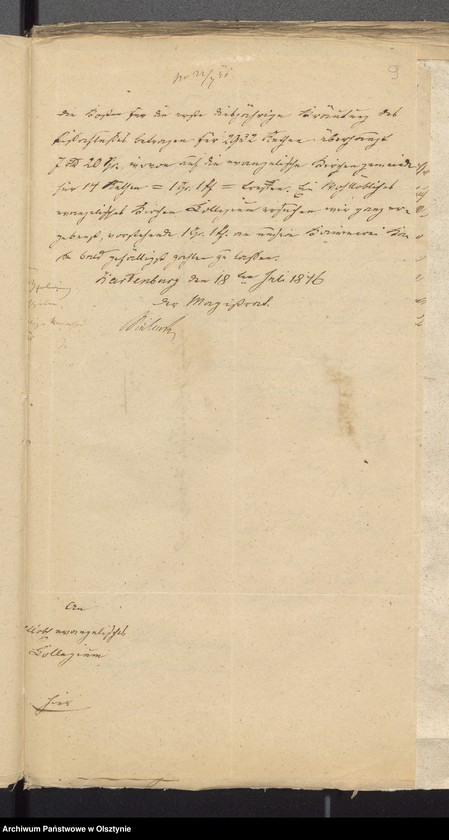 9
die Kosten für die erste diesjährige Räumung des
betragen für 2932 Ruthen überhaupt
7 rt 20 Sgr. wovon auf die evangelische Kirchengemeinde
für 14 Ruthen = 1 Sgr. 1 Pf = treffen. Ein Wohllöbliches
evangelisches Kirchen Collegium ersuchen wir ganz er-
gebenst, vorstehende 1 Sgr. 1 Pf. an unsere Kämmerei Kas-
se bald gefälligst zahlen zu lassen.
Wartenburg den 18 ten Juli 1846
Der Magistrat.
An
evangelisches
Collegium
hier
Archiwum Państwowe w Olsztynie